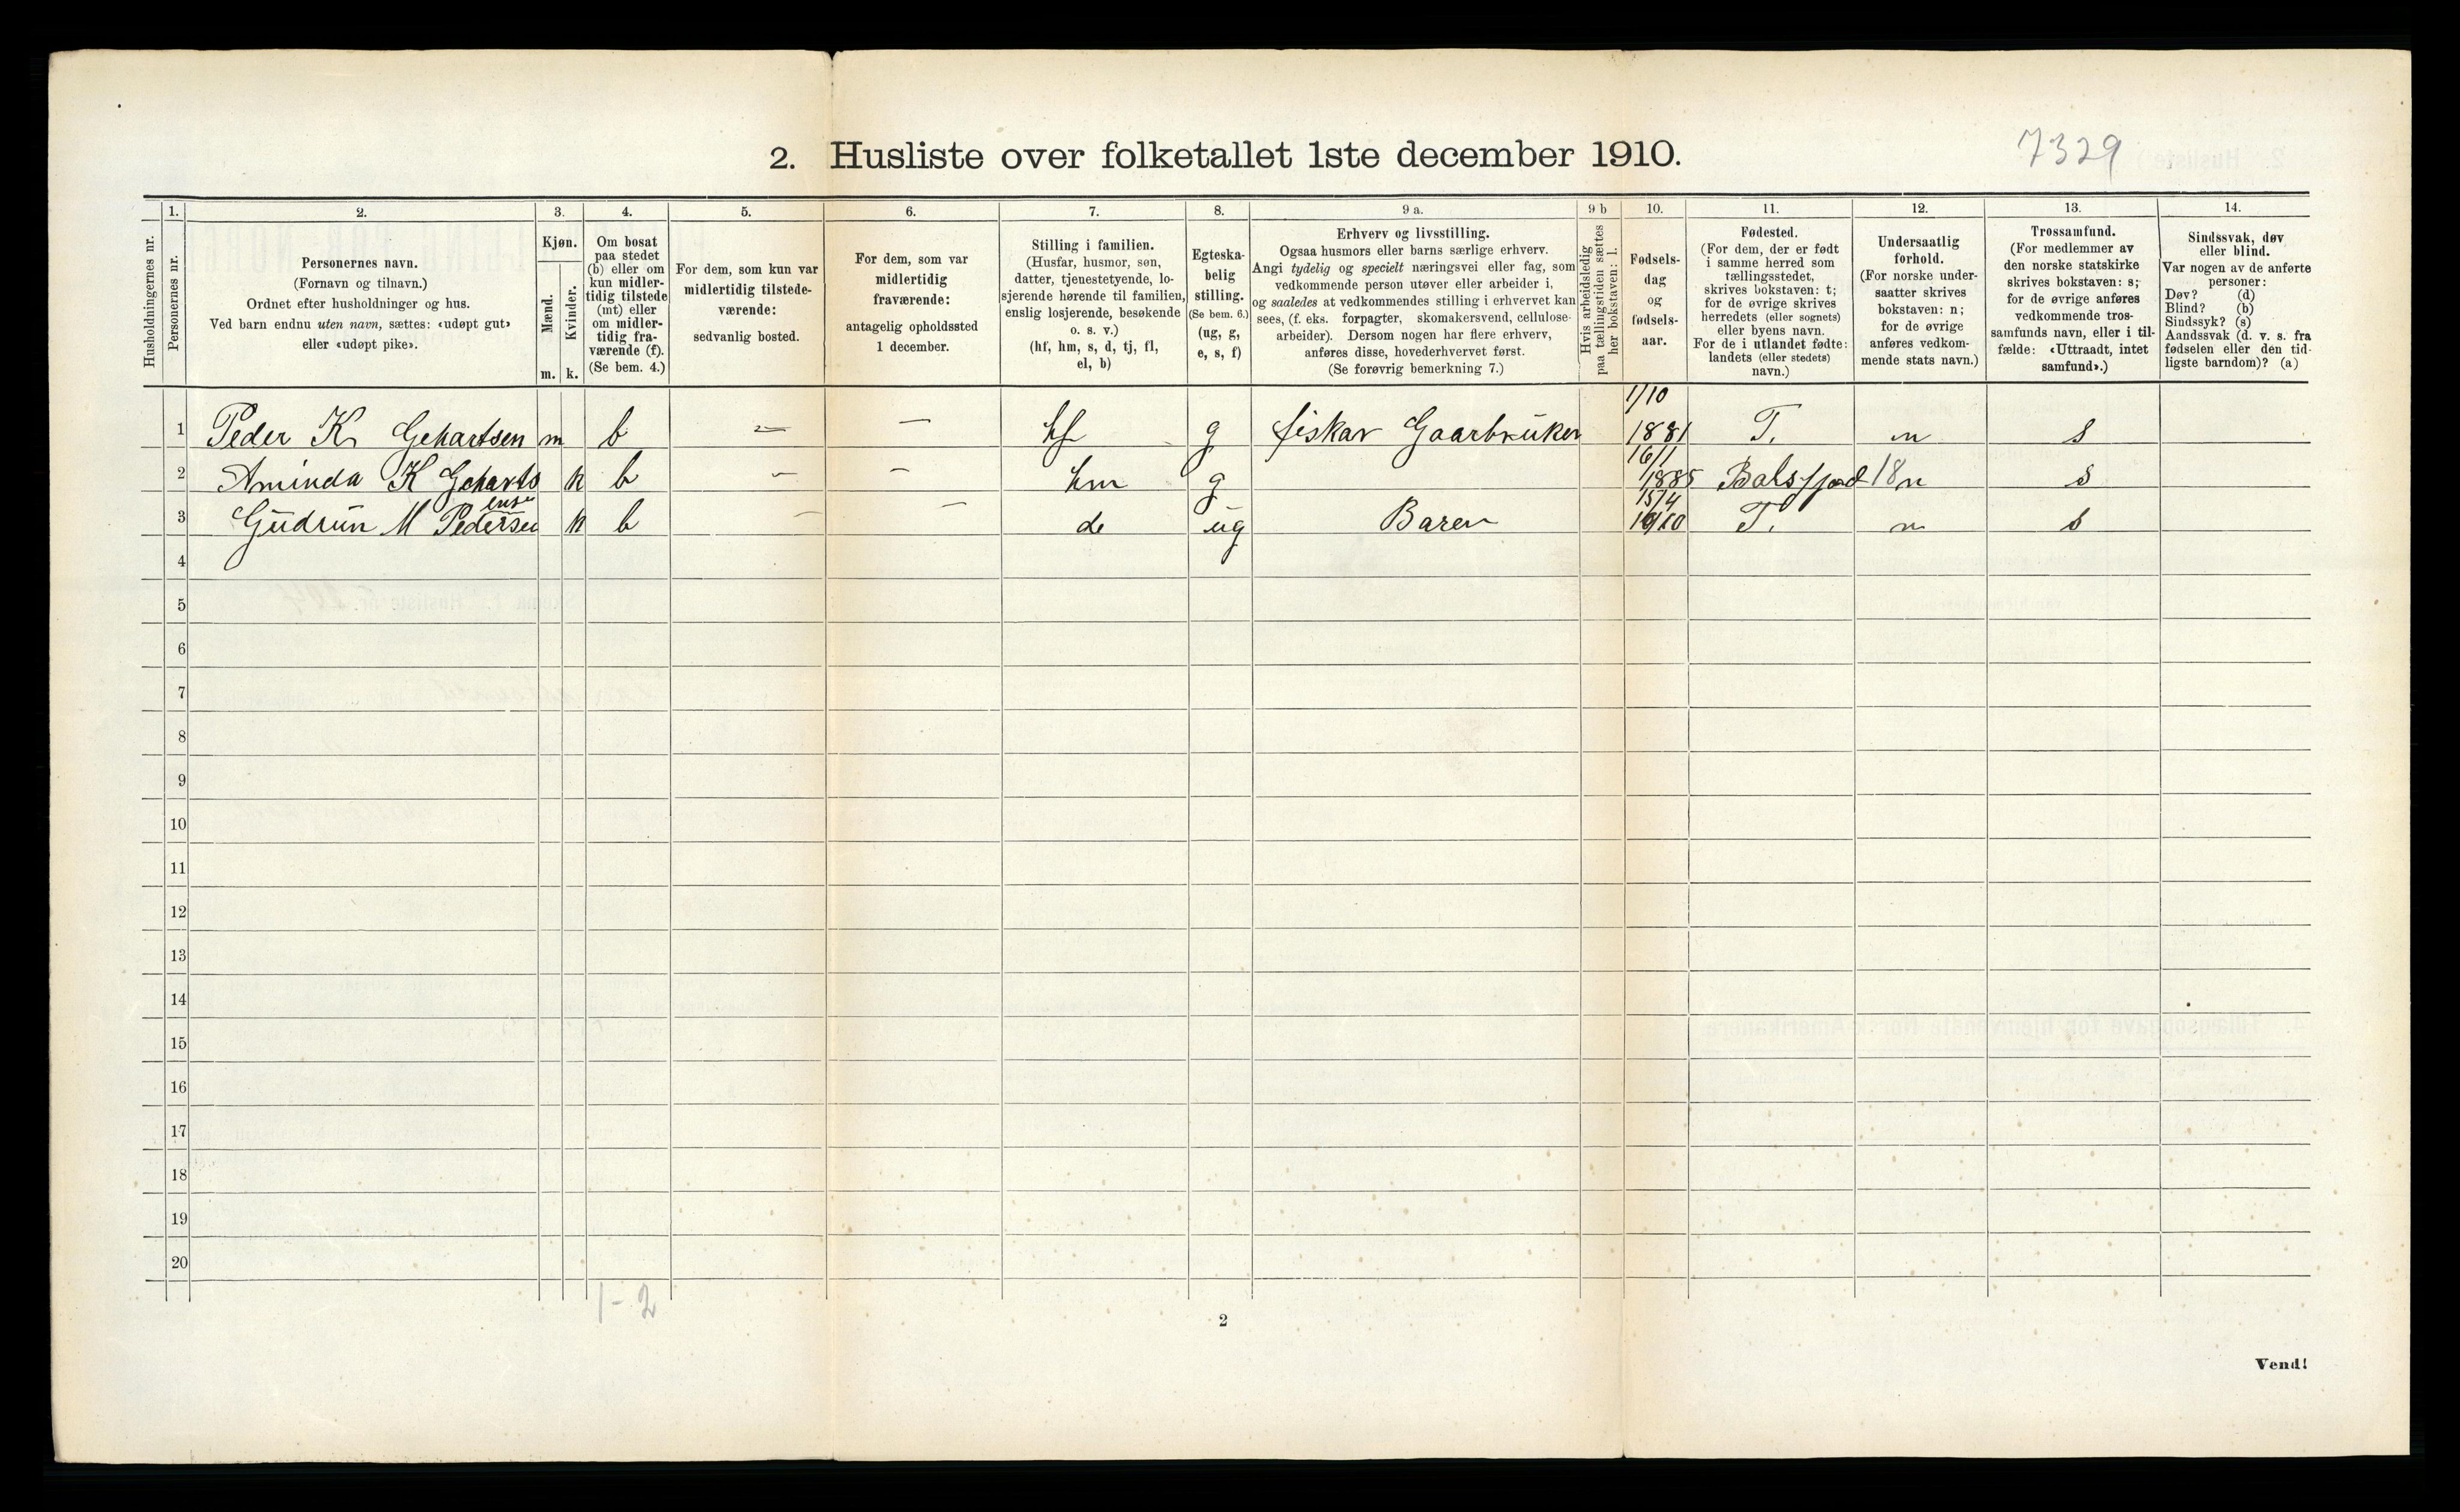 7329
2. Husliste over folketallet 1ste december 1910.
1. 2. 3. 4. 5. 6. 7. 8. 9 a. 9 b 10. 11. 12. 13. 14.
Husholdningernes nr.
Personernes nr.
Personernes navn.
(Fornavn og tilnavn.)
Ordnet efter husholdninger og hus.
Ved barn endnu uten navn, sættes: «udøpt gut»
eller «udøpt pike».
Kjøn.
Mænd.
Kvinder.
m. k.
Om bosat
paa stedet
(b) eller om
kun midler-
tidig tilstede
(mt) eller
om midler-
tidig fra-
værende (f).
(Se bem. 4.)
For dem, som kun var
midlertidig tilstede-
værende:
sedvanlig bosted.
For dem, som var
midlertidig
fraværende:
antagelig opholdssted
1 december.
Stilling i familien.
(Husfar, husmor, søn,
datter, tjenestetyende, lo-
sjerende hørende til familien,
enslig losjerende, besøkende
o. s. v.)
(hf, hm, s, d, tj, fl,
el, b)
Egteska-
belig
stilling.
(Se bem. 6.)
(ug, g,
e, s, f)
Erhverv og livsstilling.
Ogsaa husmors eller barns særlige erhverv.
Angi tydelig og specielt næringsvei eller fag, som
vedkommende person utøver eller arbeider i,
og saaledes at vedkommendes stilling i erhvervet kan
sees, (f. eks. forpagter, skomakersvend, cellulose-
arbeider). Dersom nogen har flere erhverv,
anføres disse, hovederhvervet først.
(Se forøvrig bemerkning 7.)
Hvis arbeidsledig
paa tællingstiden sættes
her bokstaven: l.
Fødsels-
dag
og
fødsels-
aar.
Fødested.
(For dem, der er født
i samme herred som
tællingsstedet,
skrives bokstaven: t;
for de øvrige skrives
herredets (eller sognets)
eller byens navn.
For de i utlandet fødte:
landets (eller stedets)
navn.)
Undersaatlig
forhold.
(For norske under-
saatter skrives
bokstaven: n;
for de øvrige
anføres vedkom-
mende stats navn.)
Trossamfund.
(For medlemmer av
den norske statskirke
skrives bokstaven: s;
for de øvrige anføres
vedkommende tros-
samfunds navn, eller i til-
fælde: «Uttraadt, intet
samfund».)
Sindssvak, døv
eller blind.
Var nogen av de anførte
personer:
Døv? (d)
Blind? (b)
Sindssyk? (s)
Aandssvak (d. v. s. fra
fødselen eller den tid-
ligste barndom)? (a)
1/10
1 Peder K. Gehartsen m b — — hf g fiskar Gaarbrüker 1881 T. n s
16/1
2 Aminda K Geharts k b — — hm g 1885 Balsfjord 18 n s
ensen 15/4
3 Güdrün M Pedersen k b — — de üg Baren 1910 T. n s
4
5
6
7
8
9
10
11
12
13
14
15
16
17
18
19
20
1 - 2
2
Vend!